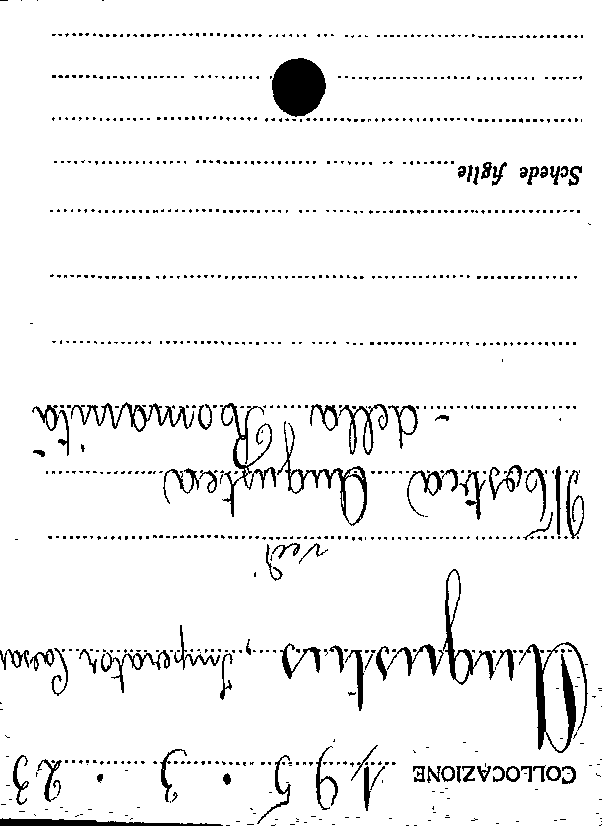 COLLOCAZIONE 195 · 3 · 23
Augustus, Imperator Caesar
vedi
Mostra Augustea
- della Romanità -
Schede figlie